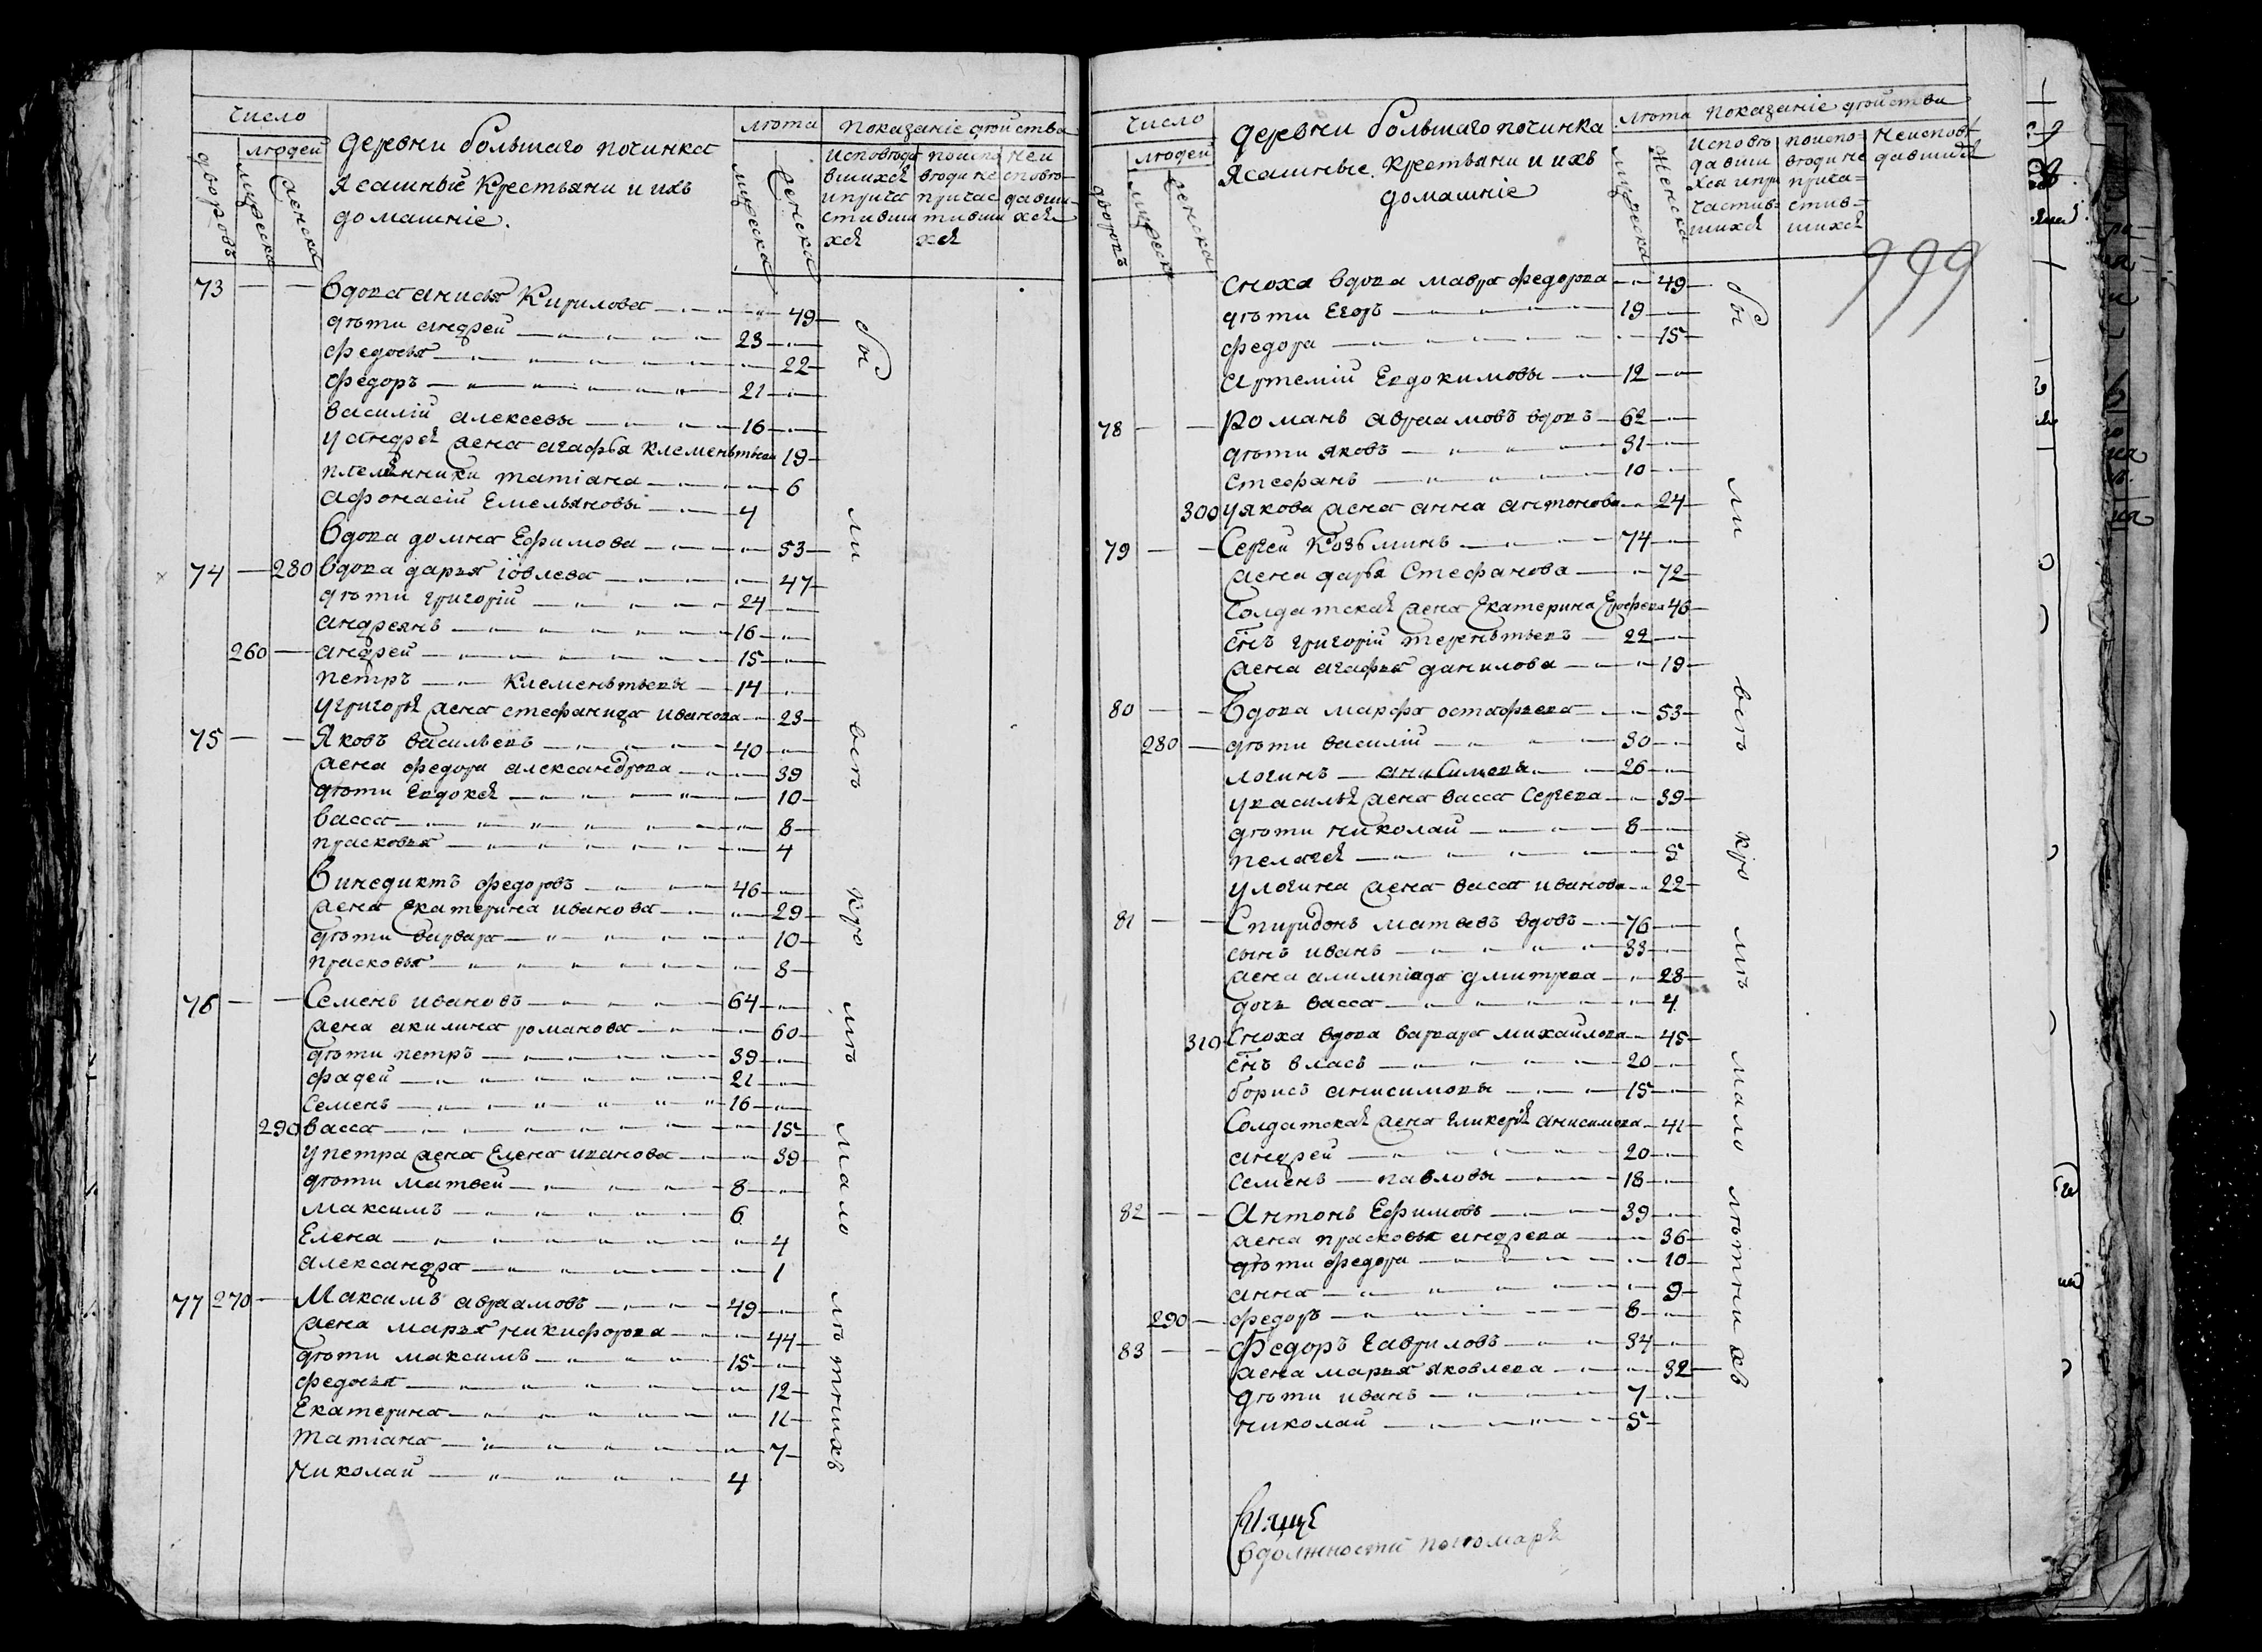 Число
людей
дворовъ
мужеска
женска
деревни большаго починка
Ясашныѣ Крестьяни и ихъ
домашніе.
лѣта
мужеска
женска
Показаніе действа
Исповѣда
вшихся
и прича
стивши
хся
поиспо
вѣди не
причас
тивши
хся
неи
сповѣ
давши
хся
73 — — Вдова анисья Кирилова — 49
дѣти андрей — 23
федосья — 22
федоръ — 21
василій алексеевы — 16
у андрея жена агафья клементьева 19
племянники татіана — 6
афонасій Емельяновы — 4
Вдова домна Ефимова — 53
74 — 280 вдова дарья іовлева — 47
дѣти григорій — 24
андреянъ — 16
260 — андрей — 15
петръ — клементьевы — 14
у григорья жена стефанида иванова — 23
75 — — Яковъ васильевъ — 40
жена федора александрова — 39
дѣти Евдокея — 10
васса — 8
прасковья — 4
Винедиктъ федоровъ — 46
жена Екатерина иванова — 29
дѣти варвара — 10
прасковья — 8
76 — — Семенъ ивановъ — 64
жена акилина романова — 60
дѣти петръ — 39
фадей — 21
Семенъ — 16
290 васса — 15
у петра жена Елена иванова — 39
дѣти матвей — 8
максимъ — 6
Елена — 4
александра — 1
77 270 — Максимъ авраамовъ — 49
жена марья никифорова — 44
дѣти максимъ — 15
федосья — 12
Екатерина — 11
татіана — 7
николай — 4
бы ли всѣ кро мѣ мало лѣтнихъ
Число
людей
дворовъ
мужеск
женска
деревни большаго починка
Ясашные Крестьяни и ихъ
домашніе
лѣта
мужеска
женска
Показаніе действа
Исповѣ
давши
хся и при
частив=
шихся
поиспо=
вѣди не
прича=
стив=
шихся
Неисповѣ
давшихся
999
Сноха вдова мавра федорова — 49
дѣти Егоръ — 19
федора — 15
Артемій Евдокимовы — 12
78 — — Романъ авраамовъ вдовъ — 62
дѣти яковъ — 31
Стефанъ — 10
300 у якова жена анна антонова — 24
79 — — Сергей Козьминъ — 74
жена дарья Стефанова — 72
Солдатская жена Екатерина Ерофеева 46
снъ григорій терентьевъ — 22
жена агафья данилова — 19
80 — — Вдова марфа остафьева — 53
280 — дѣти василій — 30
логинъ — анисимовы — 26
у василья жена васса Сергева — 39
дѣти николай — 8
пелагея — 5
у логина жена васса иванова — 22
81 — — Спиридонъ матвеевъ вдовъ — 76
сынъ иванъ — 33
жена алимпіада дмитрева — 28
дочь васса — 4
310 Сноха вдова варвара михайлова — 45
снъ власъ — 20
борисъ анисимовы — 15
Солдатская жена гликерія анисимова — 41
андрей — 20
семенъ — павловы — 18
82 — — Антонъ Ефимовъ — 39
жена прасковья андрева — 36
дѣти федора — 10
анна — 9
290 — федоръ — 8
83 — — Федоръ Гавриловъ — 34
жена марья яковлева — 32
дѣти иванъ — 7
николай — 5
бы ли всѣ кро мѣ мало лѣтнихъ
вдолжности пономаря